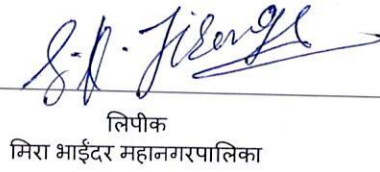 लिपीक
मिरा भाईंदर महानगरपालिका